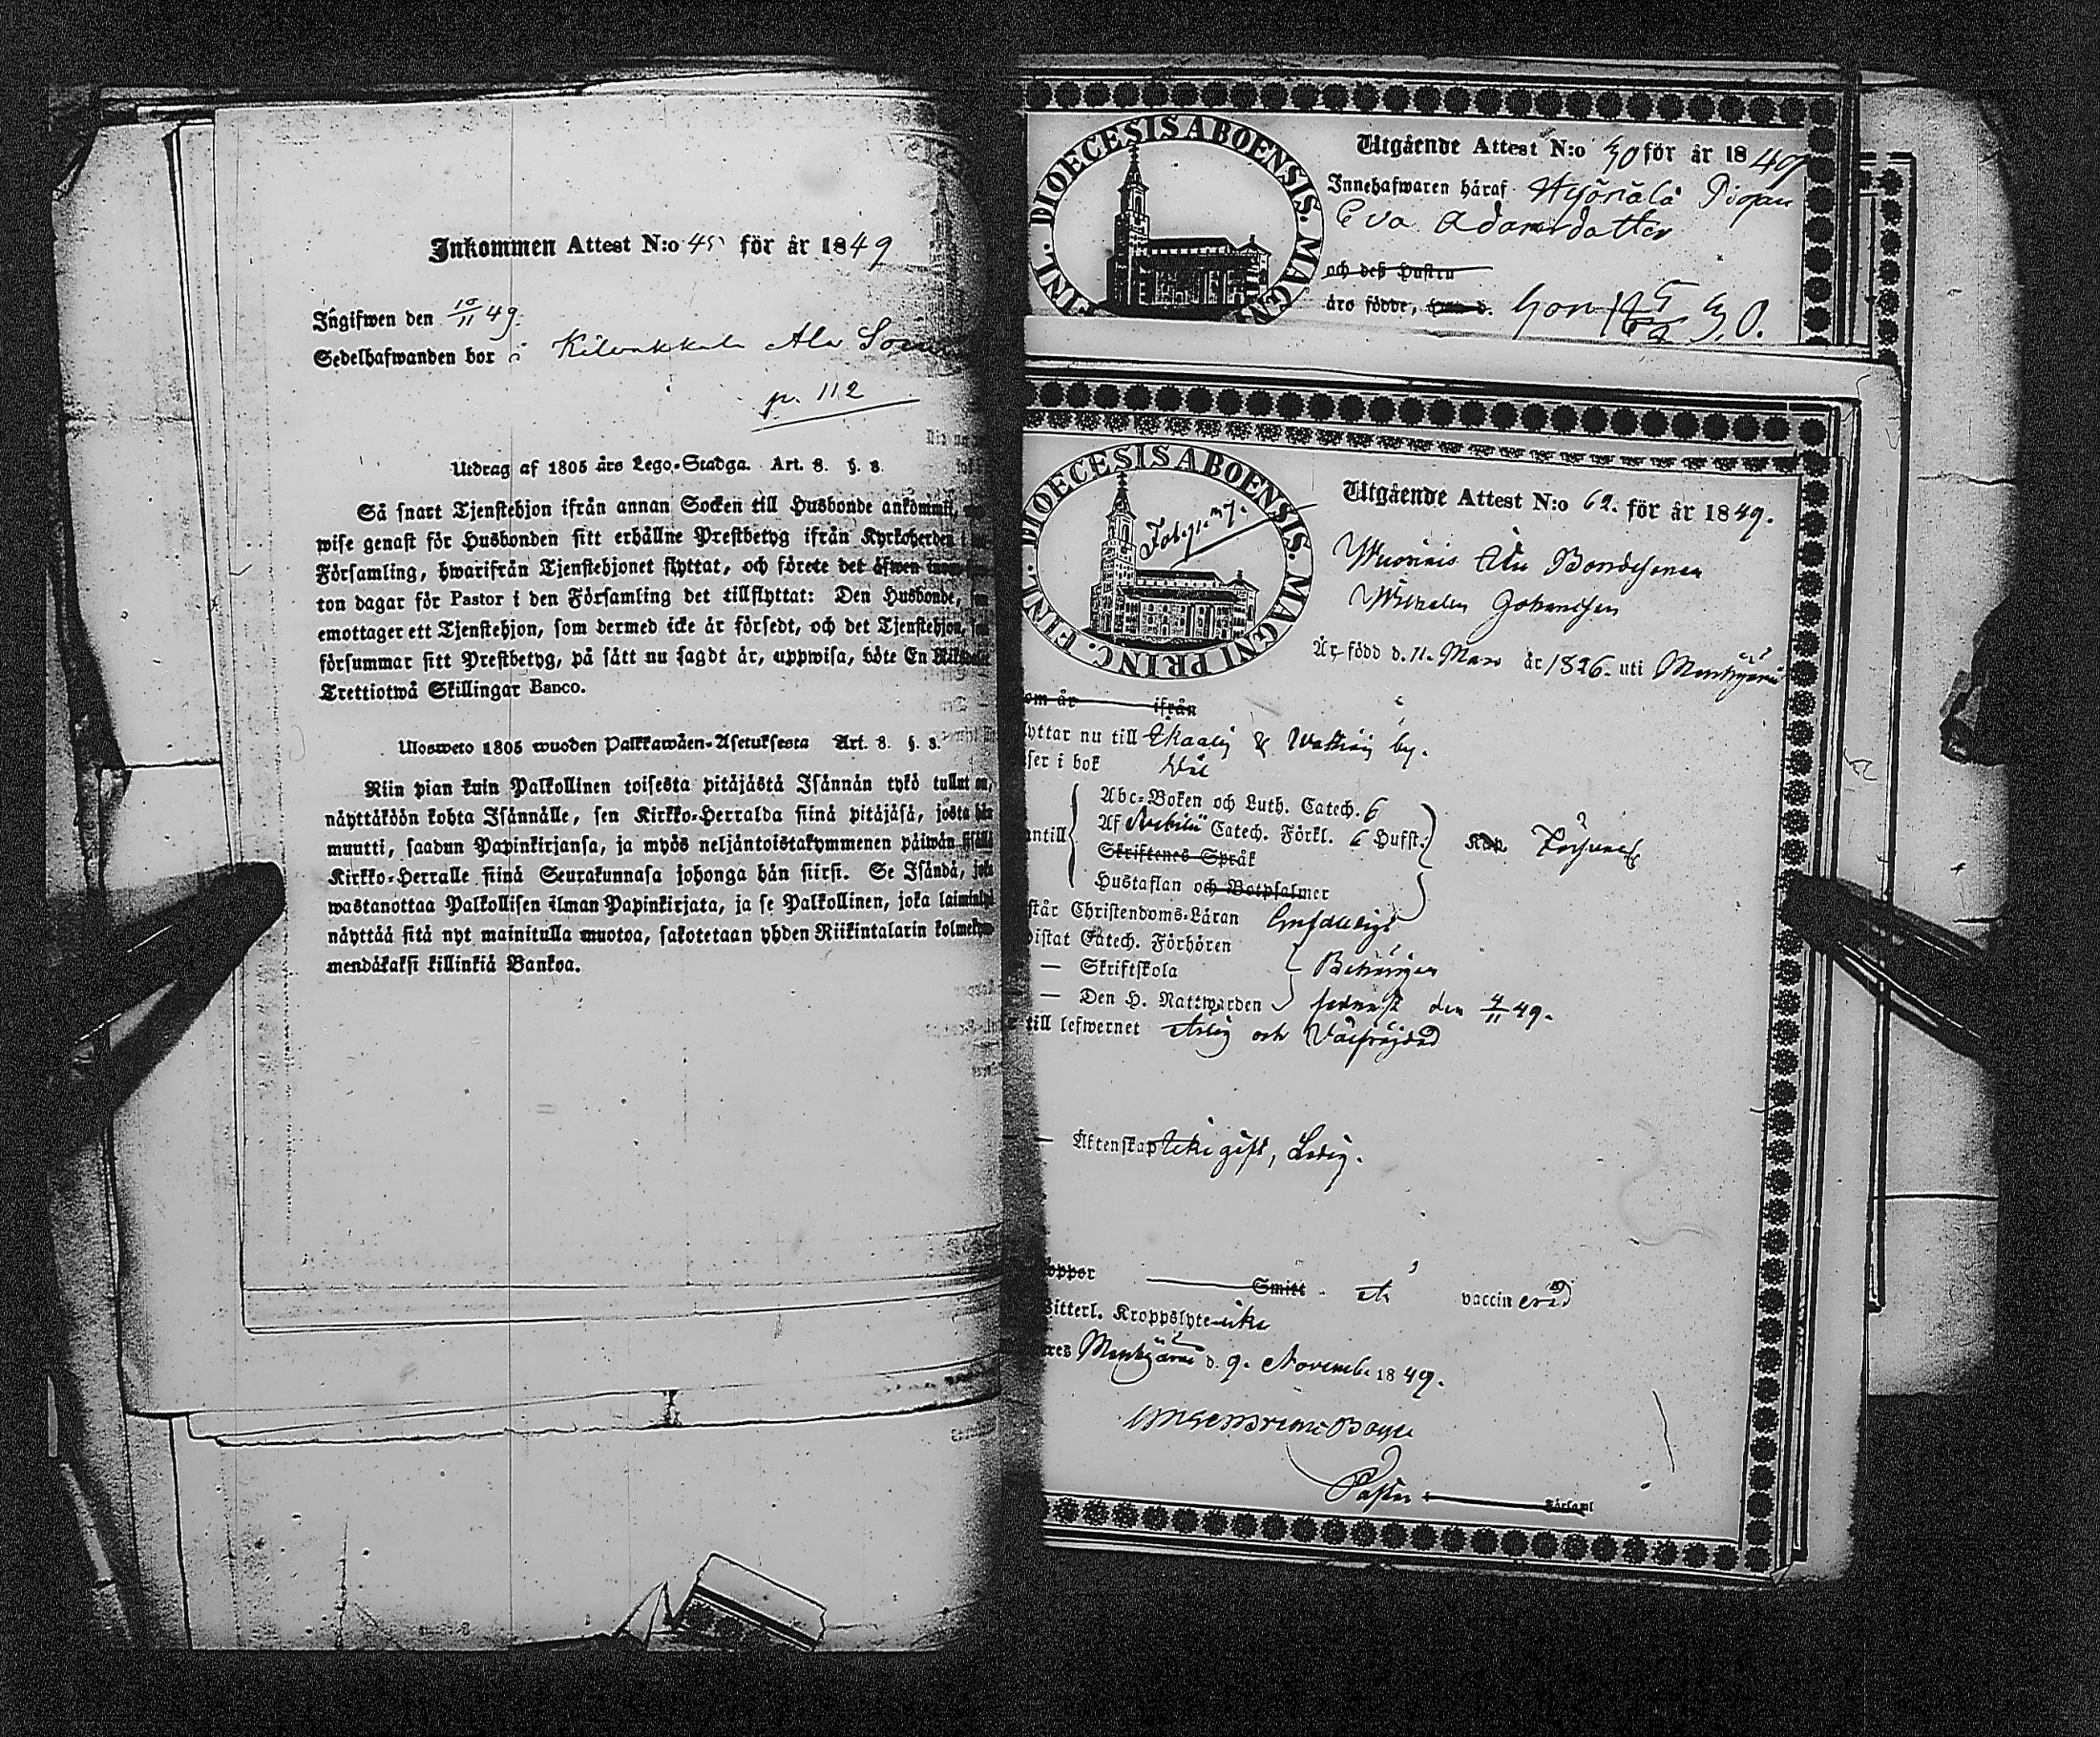 Inkommen Attest N:o 45 för år 1849
Ingifwen den 10/11 49.
Sedelhafwanden bor i Kilwakkala Ala
p. 112
Utdrag af 1805 års Lego-Stadga. Art. 8. §. 8.
Så snart Tjenstehjon ifrån annan Socken till Husbonde ankommit,
wise genast för Husbonden sitt erhållne Prestbetyg ifrån Kyrkoherden i
Församling, hwarifrån Tjenstehjonet flyttat, och förete det äfwen
ton dagar för Pastor i den Församling det tillflyttat: Den Husbonde,
emottager ett Tjenstehjon, som dermed icke är försedt, och det Tjenstehjon,
försummar sitt Prestbetyg, på sätt nu sagdt är, uppwisa, böte En Riksdaler
Trettiotwå Skillingar Banco.
Ulosweto 1805 wuoden Palkkawäen-Asetuksesta Art. 8. §. 8.
Niin pian kuin Palkollinen toisesta pitäjästä Isännän tykö tullut on,
näyttäköön kohta Isännälle, sen Kirkko-Herralda siinä pitäjäsä, josta hän
muutti, saadun Papinkirjansa, ja myös neljäntoistakymmenen päiwän sisällä
Kirkko-Herralle siinä Seurakunnasa johonga hän siirsi. Se Isändä, joka
wastanottaa Palkollisen ilman Papinkirjata, ja se Palkollinen, joka
näyttää sitä nyt mainitulla muotoa, sakotetaan yhden Riikintalarin
mendäkaksi killinkiä Bankoa.
DIOECESIS ABOENSIS. MAGNI
FINL.
Utgående Attest N:o 30 för år 1849
Innehafwaren häraf Pigan
Eva Adamsdotter
och deß Hustru
äro födde, han d. hon 30.
DIOECESIS ABOENSIS. MAGNI PRINC. FINL.
Utgående Attest N:o 62. för år 1849.
Bondesonen
Wilhelm Johansson
Är född d. 11. Mars år 1826. uti
om år ifrån
yttar nu till Ikalis & by.
ser i bok Wäl
antill
Abc-Boken och Luth. Catech. 6
Af Catech. Förkl. 6 Hufst.
Skriftenes Språk
Hustaflan och Botpsalmer
står Christendoms-Läran
istat Catech. Förhören
— Skriftskola
— Den H. Nattwarden senast den 4/11 49.
till lefwernet ärlig och Välfrägdad
— Äktenskap icke gift, Ledig.
oppor Smitt vaccinerad
Witterl. Kroppslyte icke
res d. 9. November 1849.
Pastor Församl